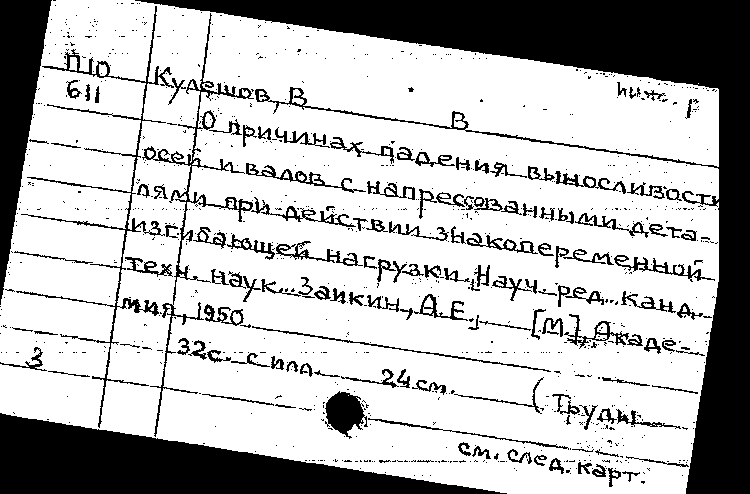 ниж. р
П10 Кулешов, В В
611
О причинах падения выносливости
осей и валов с напрессованными дета-
лями при действии знакопеременной
изгибающей нагрузки. [Науч. ред... канд.
техн. наук... Заикин, А.Е.] [М.], Акаде-
мия, 1950
32с. с илл. 24см. (Труды
3
см. след. карт.